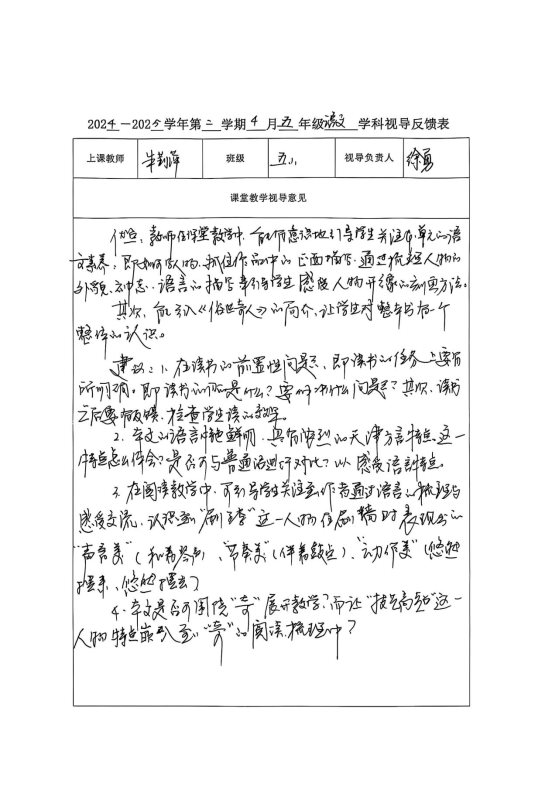 2024-2025学年第二学期4月五年级语文学科视导反馈表
上课教师 班级 五 视导负责人 徐勇
课堂教学视导意见
优点：教师在课堂教学中，能有意识地引导学生关注本单元的语
文素养，即如何写人物，抓住作品中的正面描写，通过梳理人物的
外貌、神态、语言的描写来引导学生感受人物形象的刻画方法。
其次，能引入《俗世奇人》的简介，让学生对整本书有个
整体的认识。
建议：1、在读书的前置性问题，即读书的任务上要有
所明确。即读书的 是什么？要解决什么问题？其次，读书
之后要有反馈，检查学生读的
2、本文的语言特色鲜明，具有浓烈的天津方言特点，这一
特点怎么体会？是否可与普通话进行对比？以感受语言特点。
3、在阅读教学中，可引导学生关注到作者通过语言的梳理与
感受交流，认识到“刷子李”这一人物在刷墙时表现出的
“声音美”（和着琴声）、“节奏美”（伴着鼓点）、“动作美”（悠然
摆来，悠然摆去）
4、本文是否可围绕“奇”展开教学？而让“技艺高超”这一
人物特点嵌入到“奇”的阅读梳理中？